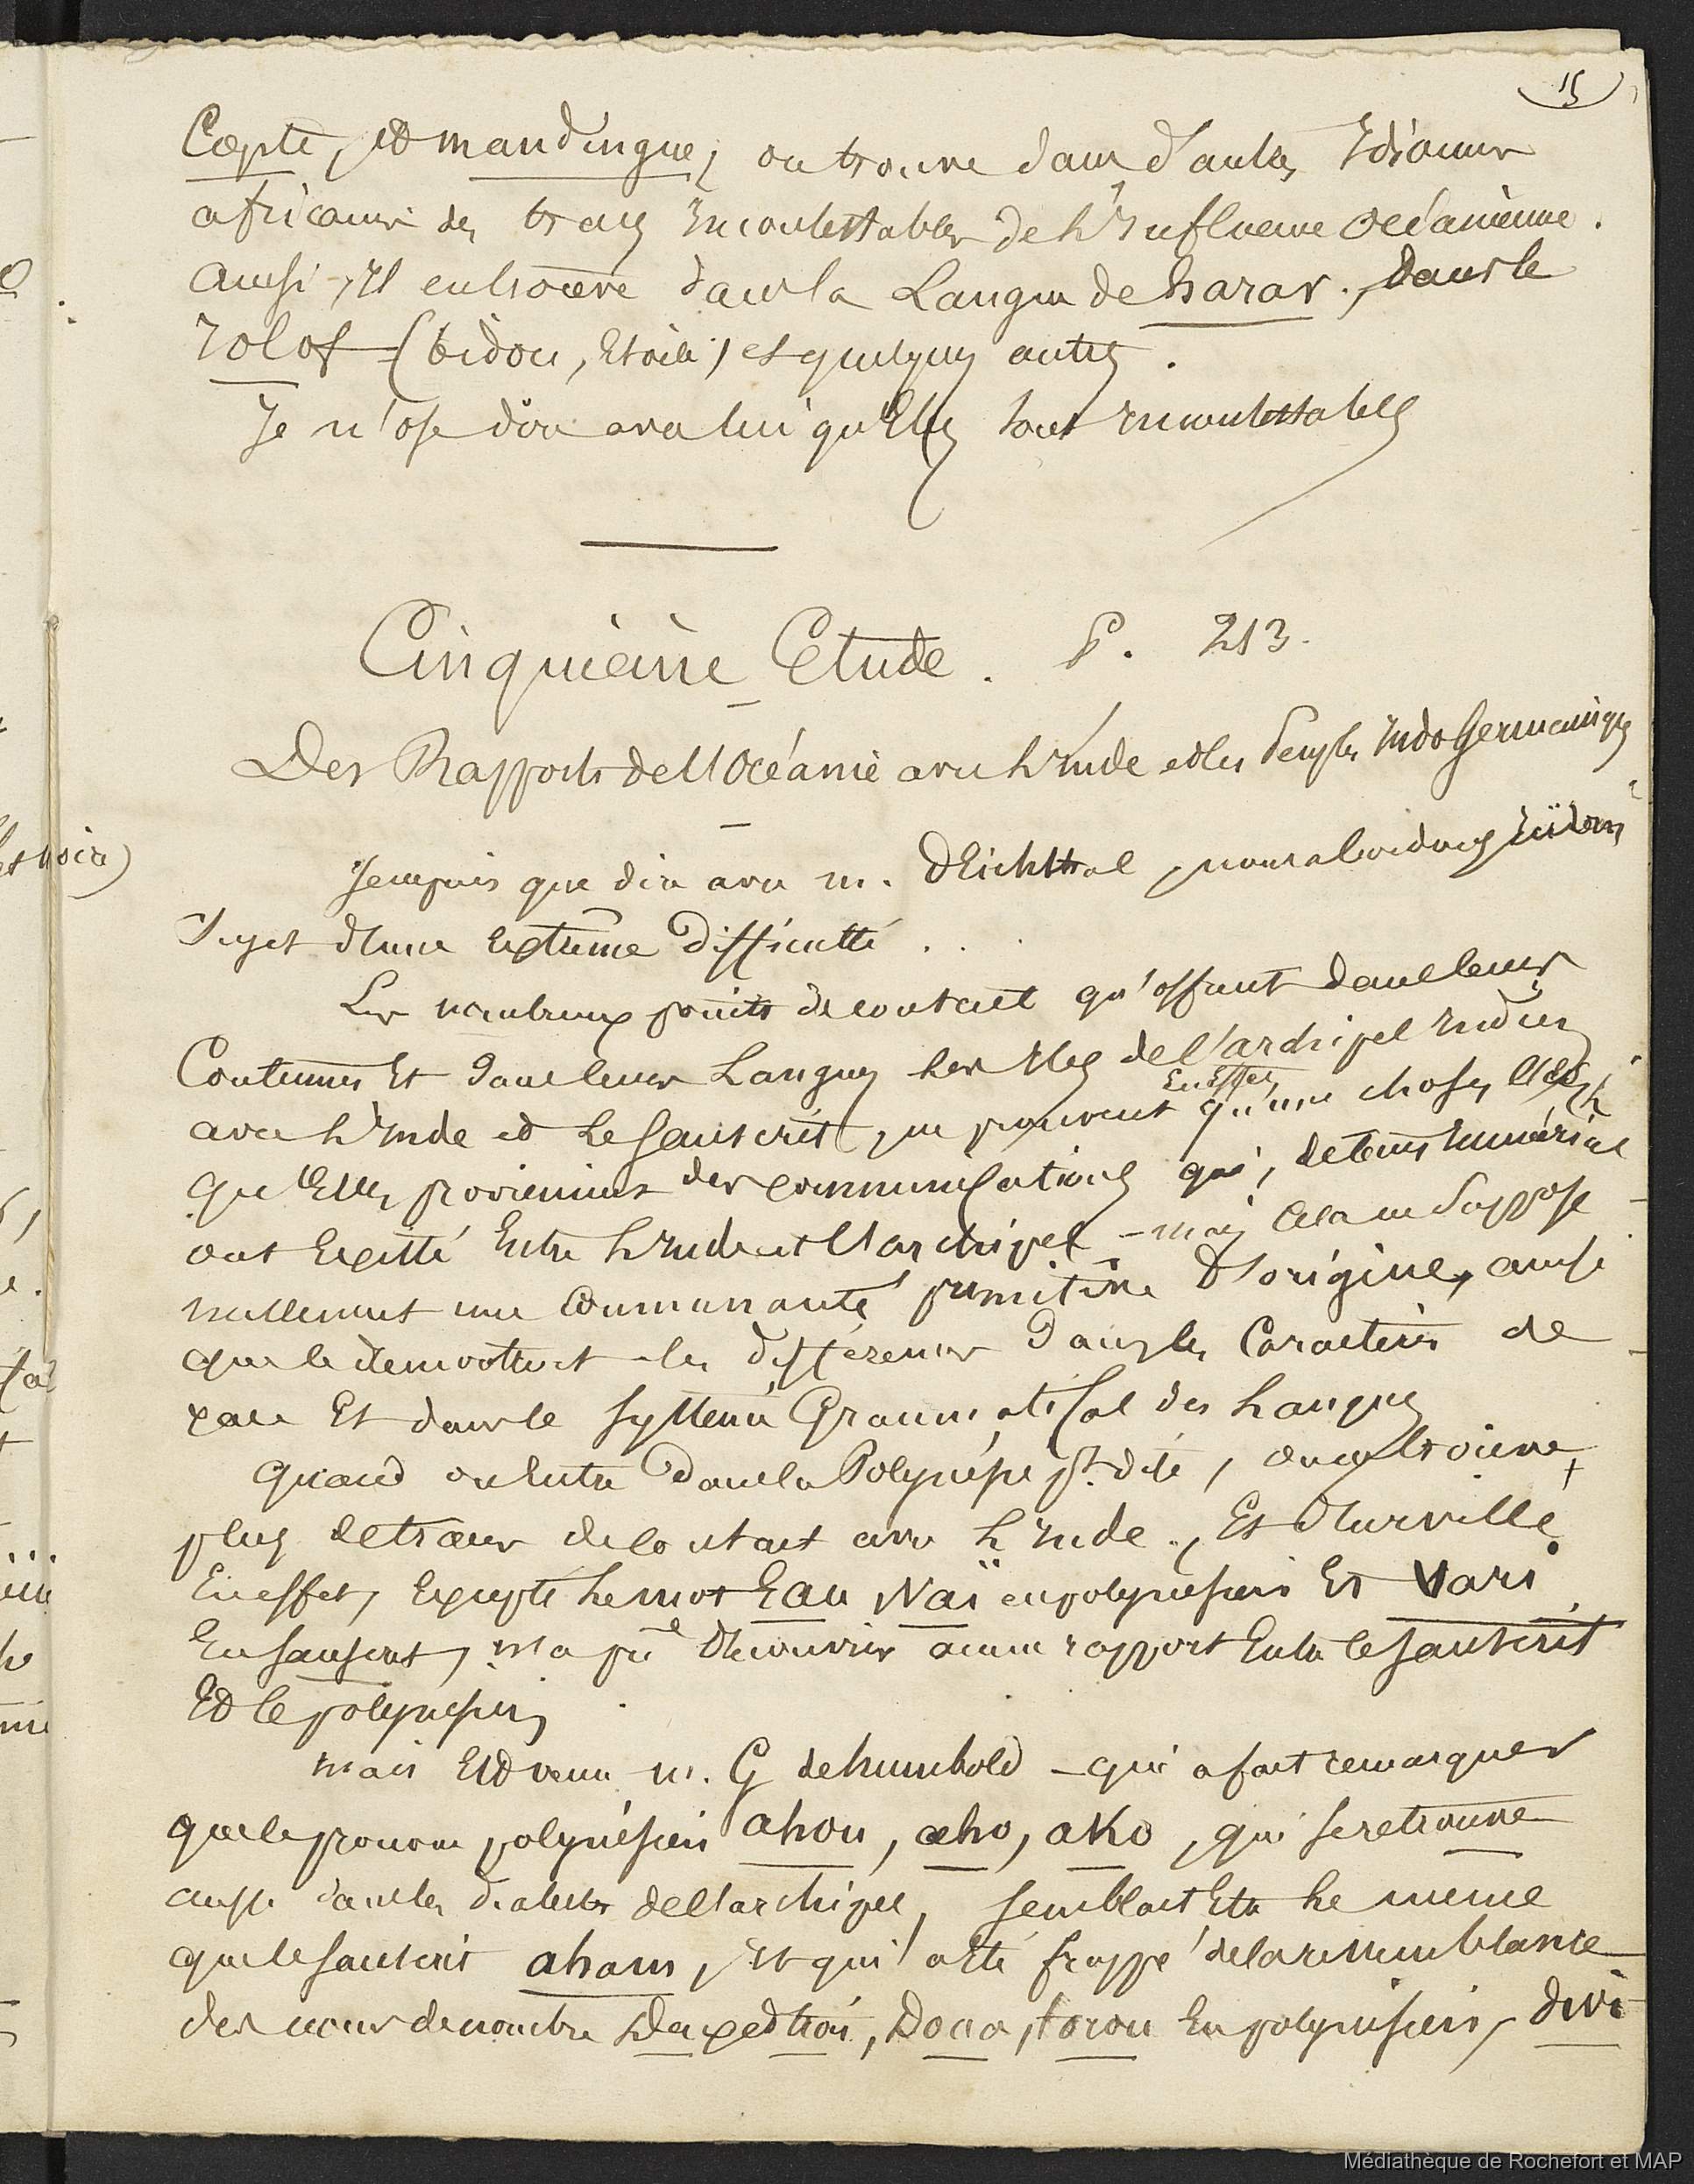 15
Copte, et mandingue, on trouve dans d'autres Idiomes
africains des traces Incontestables de L'Influence océanienne.
aussi, Il en trouve dans la Langue de harar, Dans le
Iolof (bidou, Etoile) et quelques autres.
Je n'ose dire avec lui qu'Elles sont Incontestables
Cinquième Etude. P. 213.
Des Rapports de l'Océanie avec L'Inde et les Peuples Indo Germaniques
Je ne puis que dire avec m. D'Eichthal, nous abordons Ici un
sujet d'une Extrême Difficulté . . .
Les nombreux points de contact qu'offrent dans leurs
Coutumes Et dans leurs Langues les Iles de l'archipel Indien
avec L'Inde et Le Sanscrit, ne prouvent En Effet qu'une chose, c'est
qu'Elles proviennent des communications qui, de tems Immémorial
ont Existé Entre L'Inde et l'archipel - mais cela ne suppose
nullement une communauté primitive D'origine, ainsi
que le démontrent les différences Dans les Caractères de
race Et dans le systême Grammatical des Langues
Quand on Entre Dans la Polynésie pt. dite, on ne trouve
plus de traces de contact avec L'Inde, Et D'urville,
En effet, Excepté Le mot Eau, Vaï en polynésien Et Vari
En Sanscrit, n'a pu Découvrir aucun rapport Entre le Sanscrit
Et le polynésien.
Mais Est venu m. G de humbold - qui a fait remarquer
que le pronom polynésien ahou, aho, ako, qui se retrouve
aussi dans les dialectes de l'archipel, semblait Etre Le même
que le Sanscrit aham, Et qui a été frappé de la ressemblance
des noms de nombre Deux et trois, Doua, torou En polynésien, dvi
Médiathèque de Rochefort et MAP